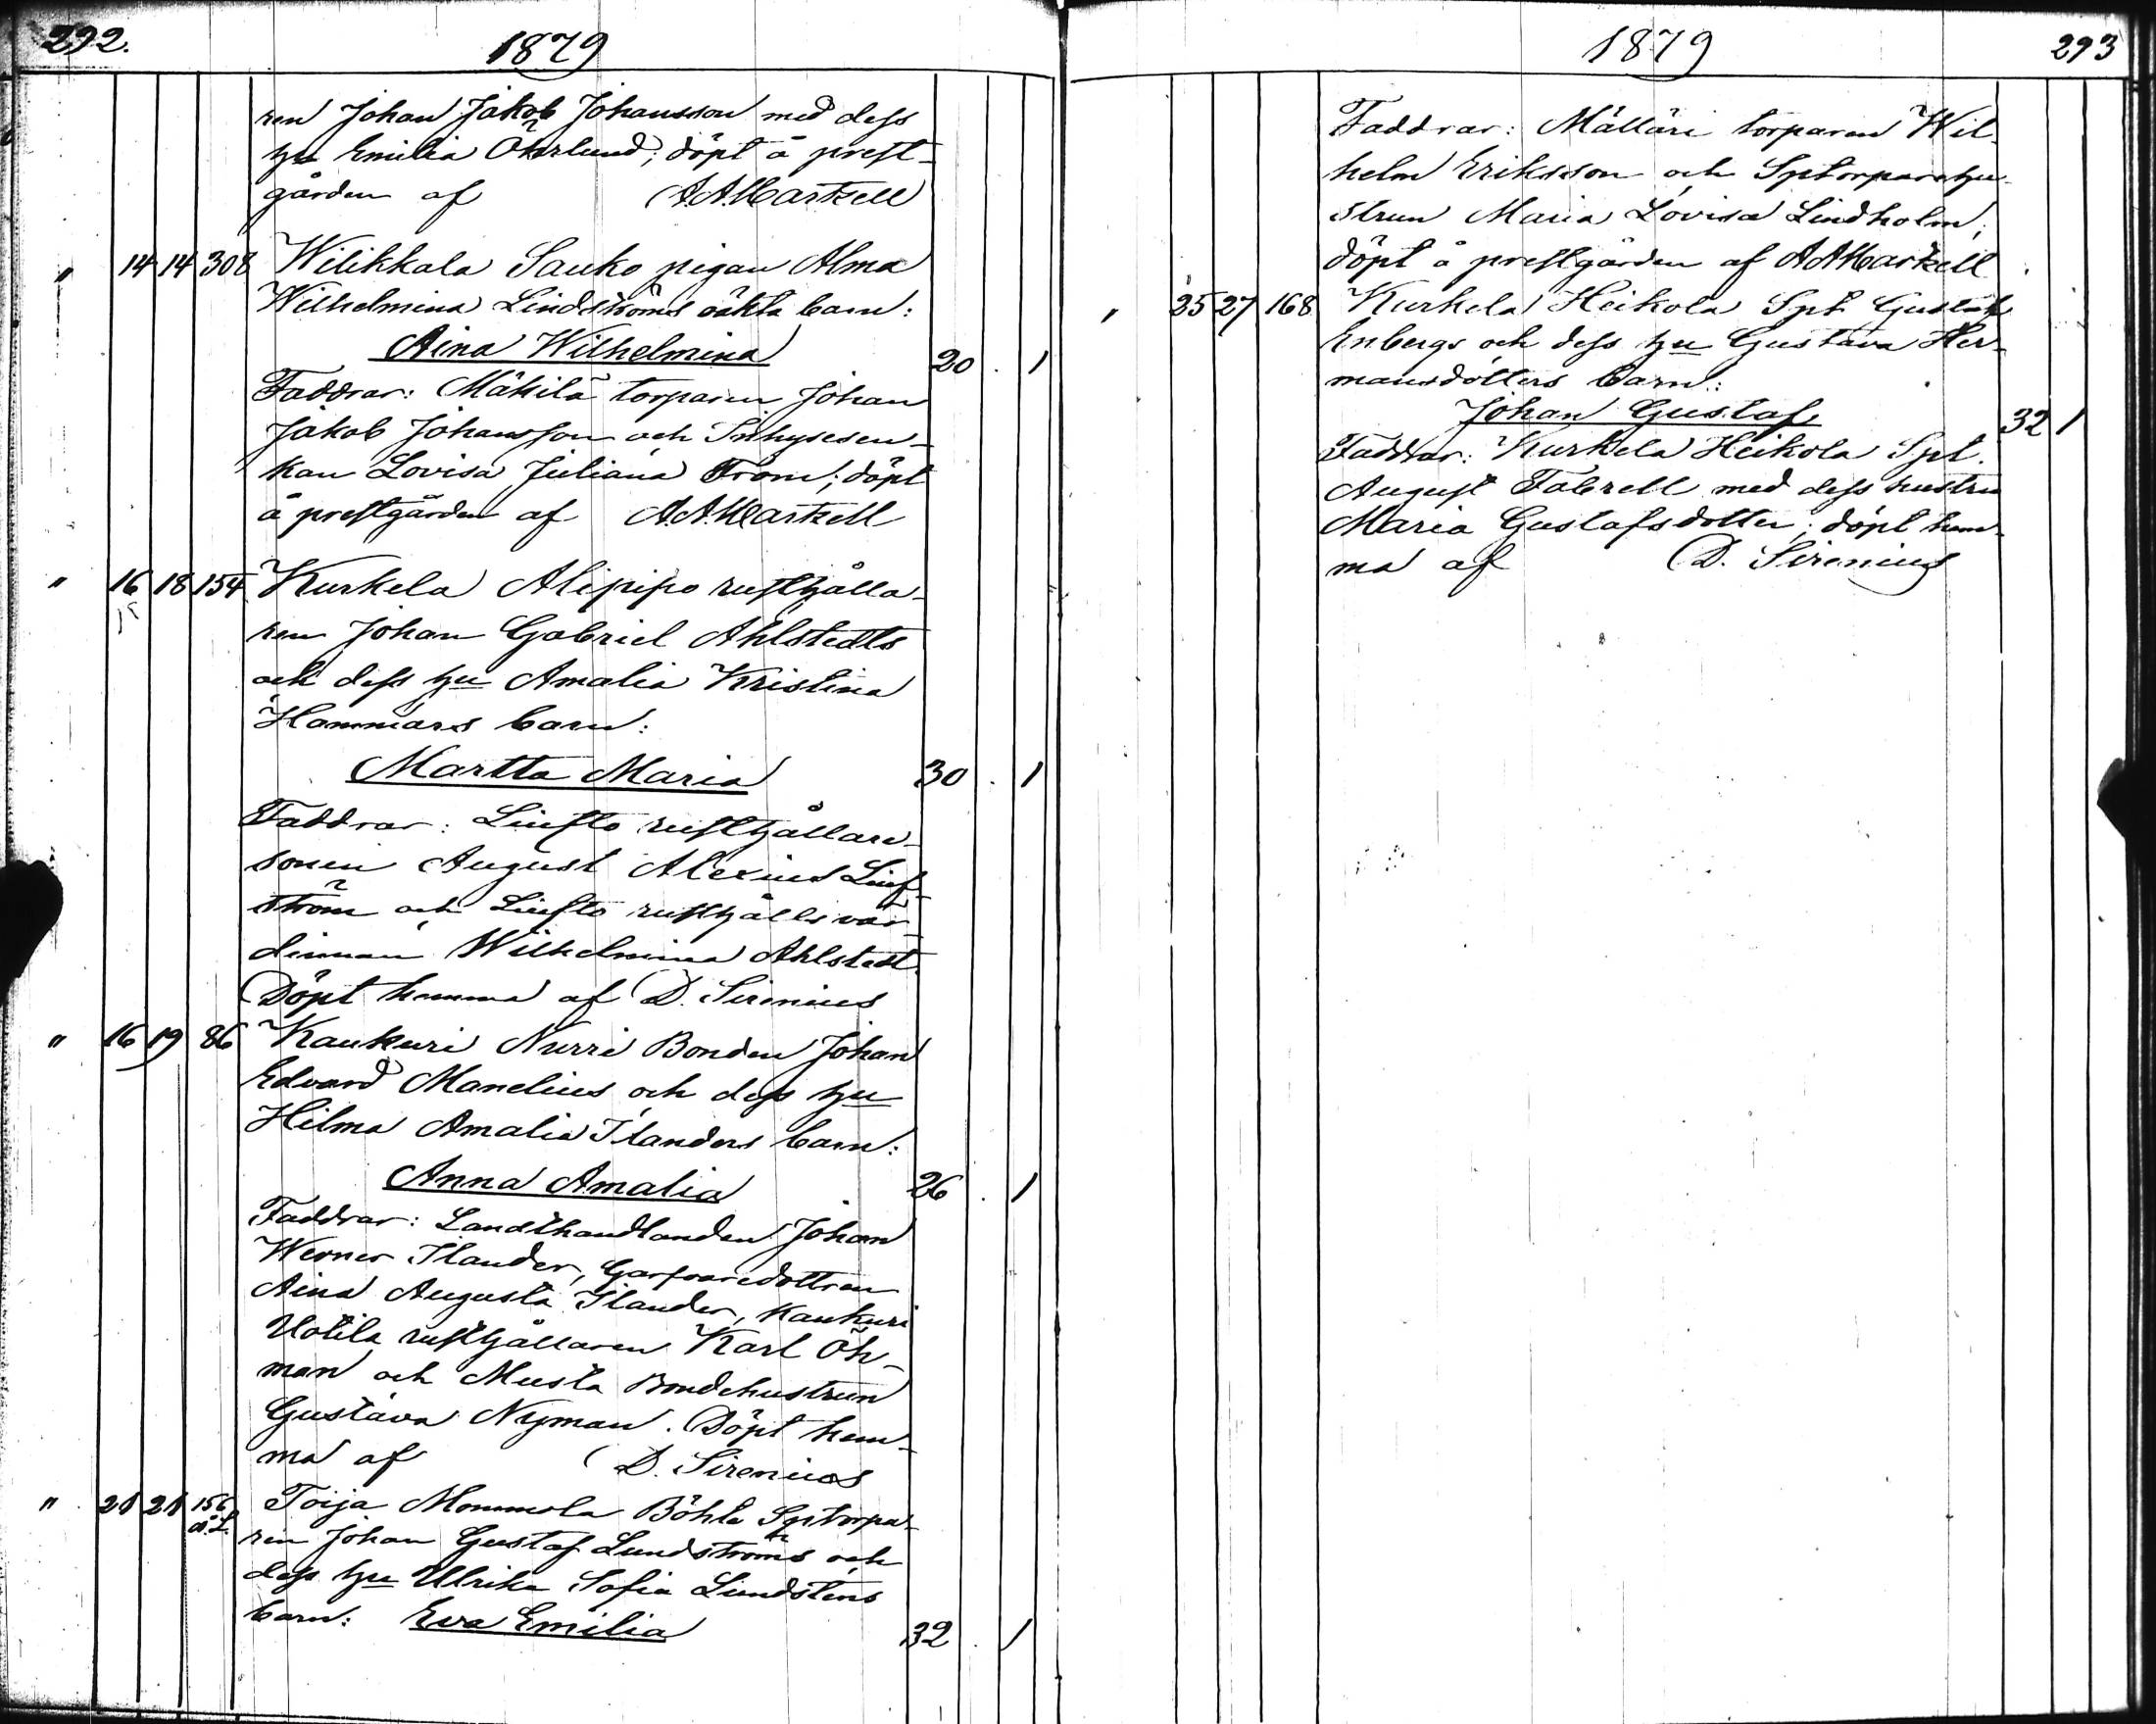 292. 1879
ren Johan Jakob Johansson med dess
hu Emilia Öhrlund; döpt å prest-
gården af A.A. Martzell
" 14 14 308 Wilikkala Sauko pigan Alma
Wilhelmina Lindströms oäkta barn:
Aina Wilhelmina 20 . 1
Faddrar: Mäkilä torparen Johan
Jakob Johansson och Inhysesen-
kan Lovisa Juliana From; döpt
å prestgården af A.A. Martzell
" 16 18 154 Kurkela Alipipo rusthålla-
ren Johan Gabriel Ahlstedts
och dess hu Amalia Kristina
Hammars barn:
Martta Maria 30 . 1
Faddrar: Liufto rusthållare-
sonen August Alexius Liuf-
ström och Liufto rusthållsvär-
dinnan Wilhelmina Ahlstedt.
Döpt hemma af D. Sirenius
" 16 19 86 Kaukuri Nurri Bonden Johan
Edvard Manelius och dess hu
Hilma Amalia Ilanders barn:
Anna Amalia 26 . 1
Faddrar: Landthandlanden Johan
Werner Ilander, Garfvaredottren
Aina Augusta Ilander, Kaukuri
Uotila rusthållaren Karl Öh-
man och Musta Bondehustrun
Gustava Nyman. Döpt hem-
ma af D. Sirenius
" 21 21 156 Toija Mommola Böhle Sptorpa-
ren Johan Gustaf Lundströms och
dess hu Ulrika Sofia Lundstens
barn: Eva Emilia 32 . 1
1879 293
Faddrar: Mälläri torparen Wil-
helm Eriksson och Sptorparehu-
strun Maria Lovisa Lindholm;
döpt å prestgården af A.A. Martzell
" 25 27 168 Kurkela Heikola Spt. Gustaf
Enbergs och dess hu Gustava Her-
mansdotters barn:
Johan Gustaf 32 1
Faddrar: Kurkela Heikola Spt.
August Fabrell med dess hustru
Maria Gustafsdotter; döpt hem-
ma af D. Sirenius